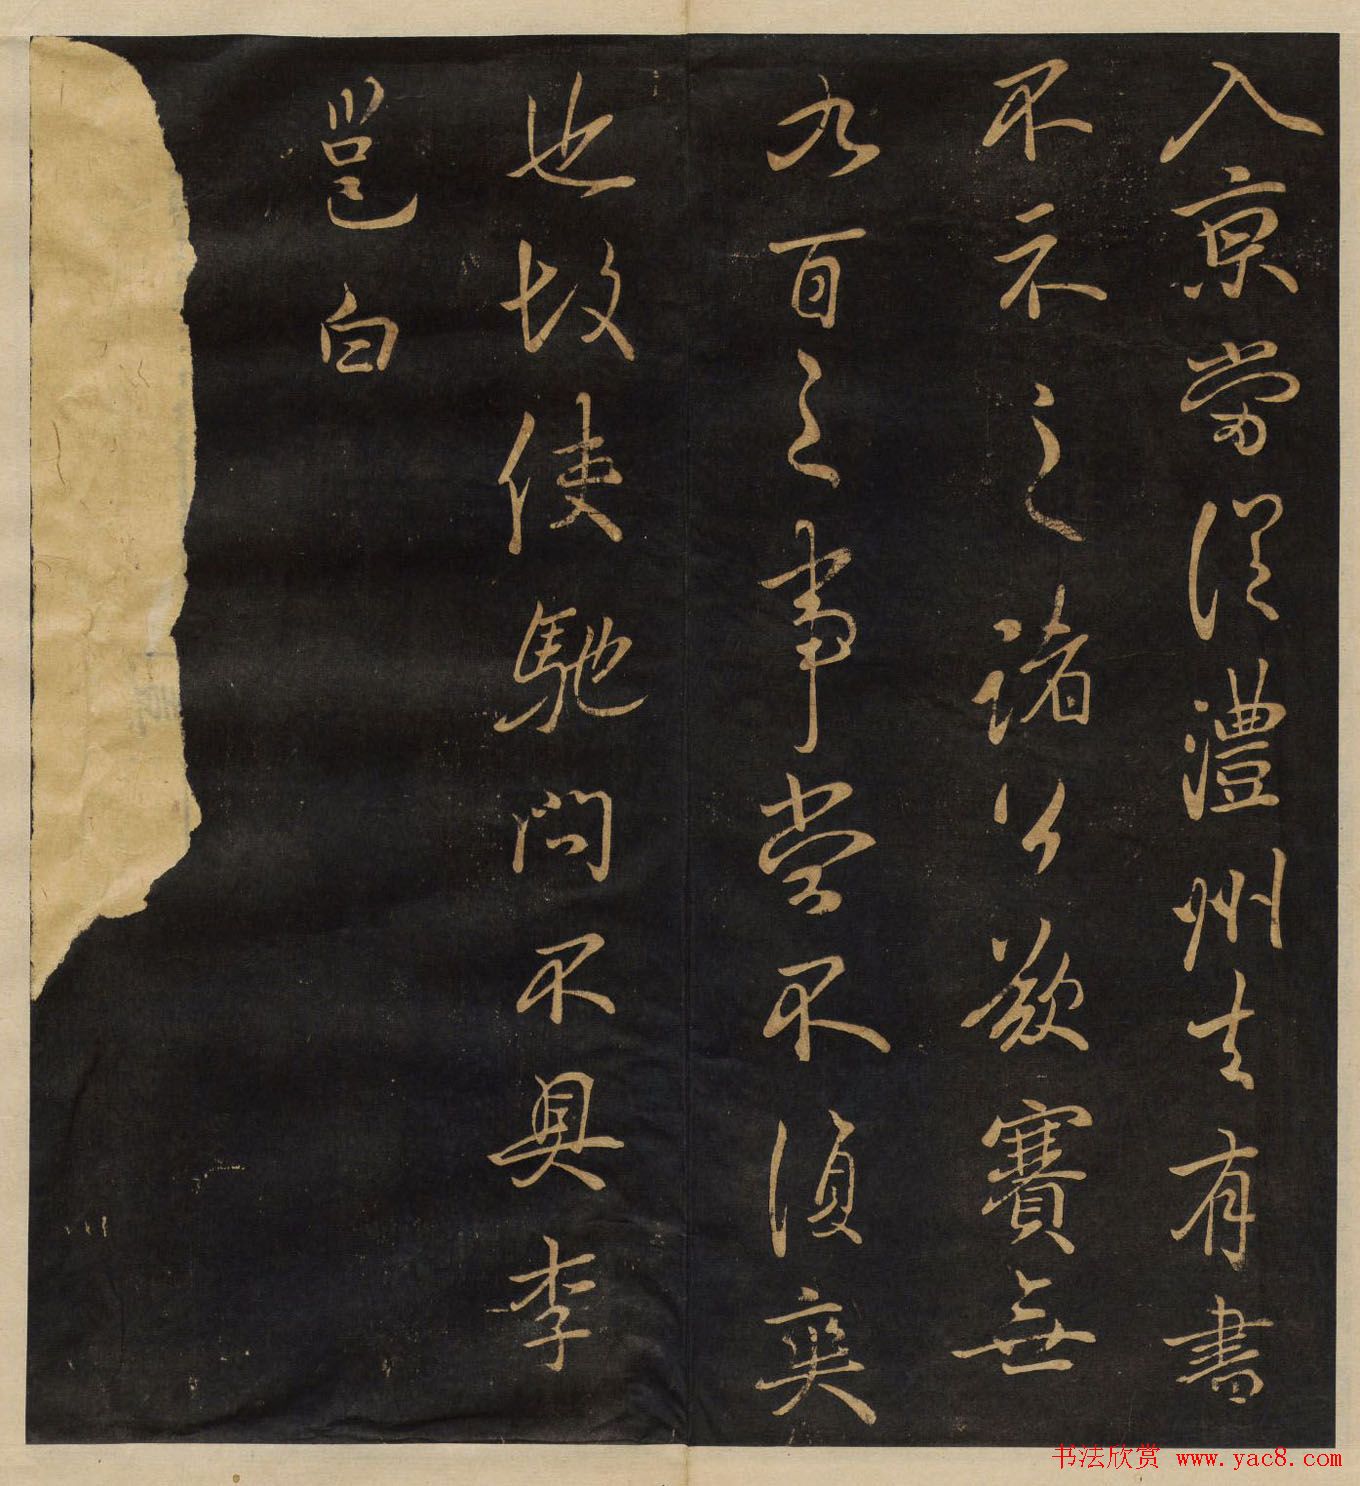 入京劳從澧州去有書
不示之諸公欲賽無
九百之事當不須爽
也故使馳問不具李
邕白
书法欣赏 www.yac8.com